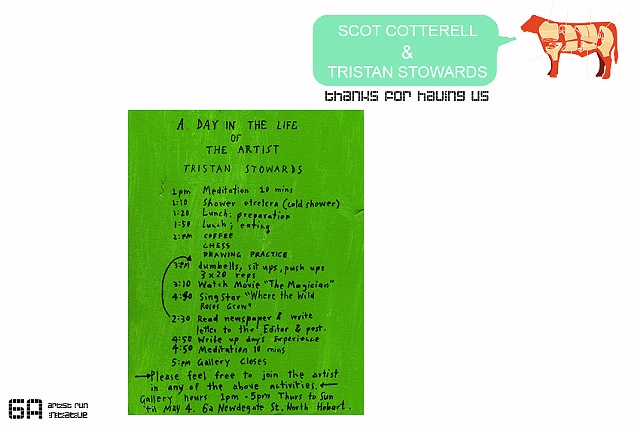 SCOT COTTERELL
&
TRISTAN STOWARDS
thanks for having us
A DAY IN THE LIFE
OF
THE ARTIST
TRISTAN STOWARDS
1pm Meditation 20 mins
1:10 Shower etcetera (cold shower)
1:20 Lunch: preparation
1:50 Lunch; eating
2:PM COFFEE
CHESS
DRAWING PRACTICE
3:PM dumbells, sit ups, push ups
3 x 20 reps
3:10 Watch Movie "The Magician"
Sing Star "Where the Wild
Roses Grow"
2:30 Read newspaper & write
letter to the Editor & post.
4:50 Write up day's Experience
4:50 Meditation 10 mins
5:PM Gallery closes
Please feel free to join the artist
in any of the above activities.
Gallery hours 1pm - 5pm Thurs to Sun
'til May 4. 6a Newdegate St, North Hobart.
6A artist run
initiative